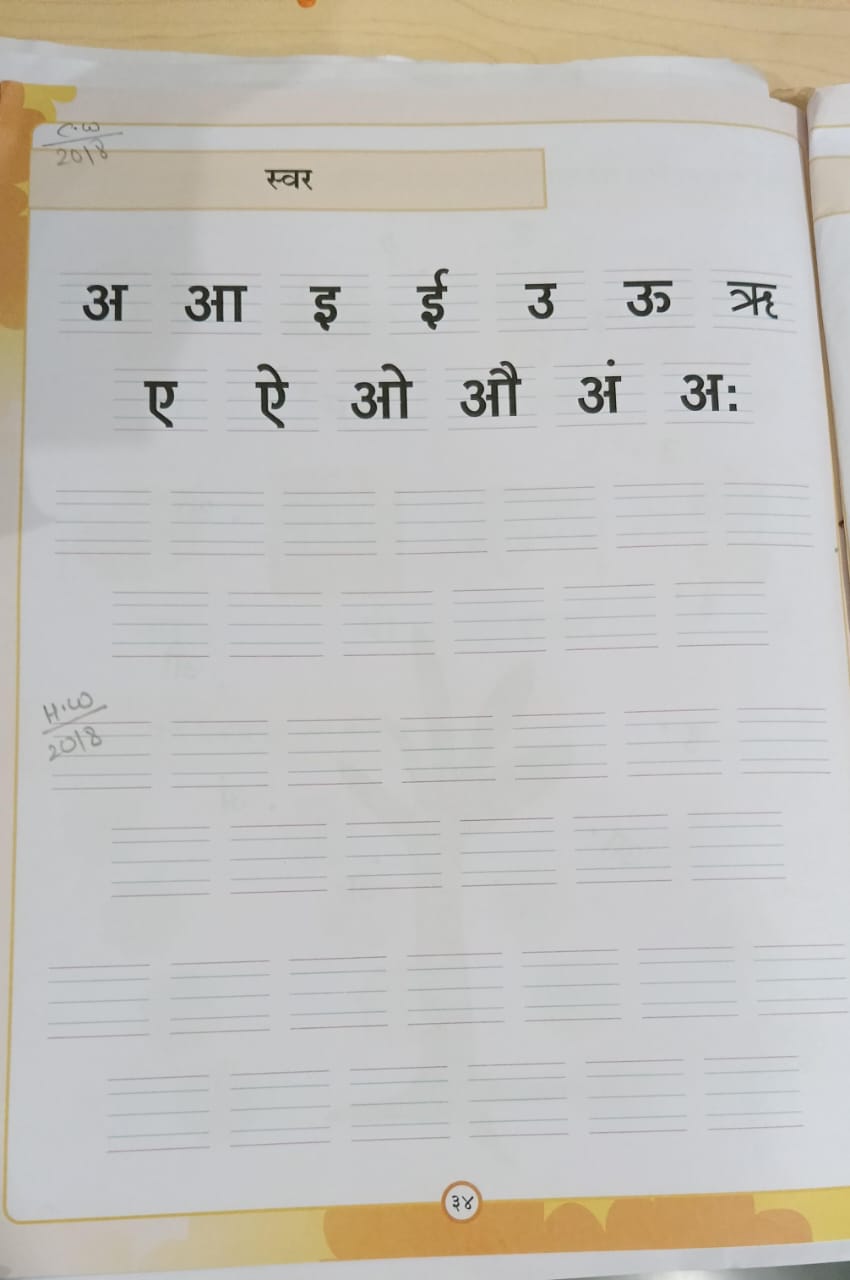 C.W
2018
स्वर
अ आ इ ई उ ऊ ऋ
ए ऐ ओ औ अं अः
H.W
2018
३४